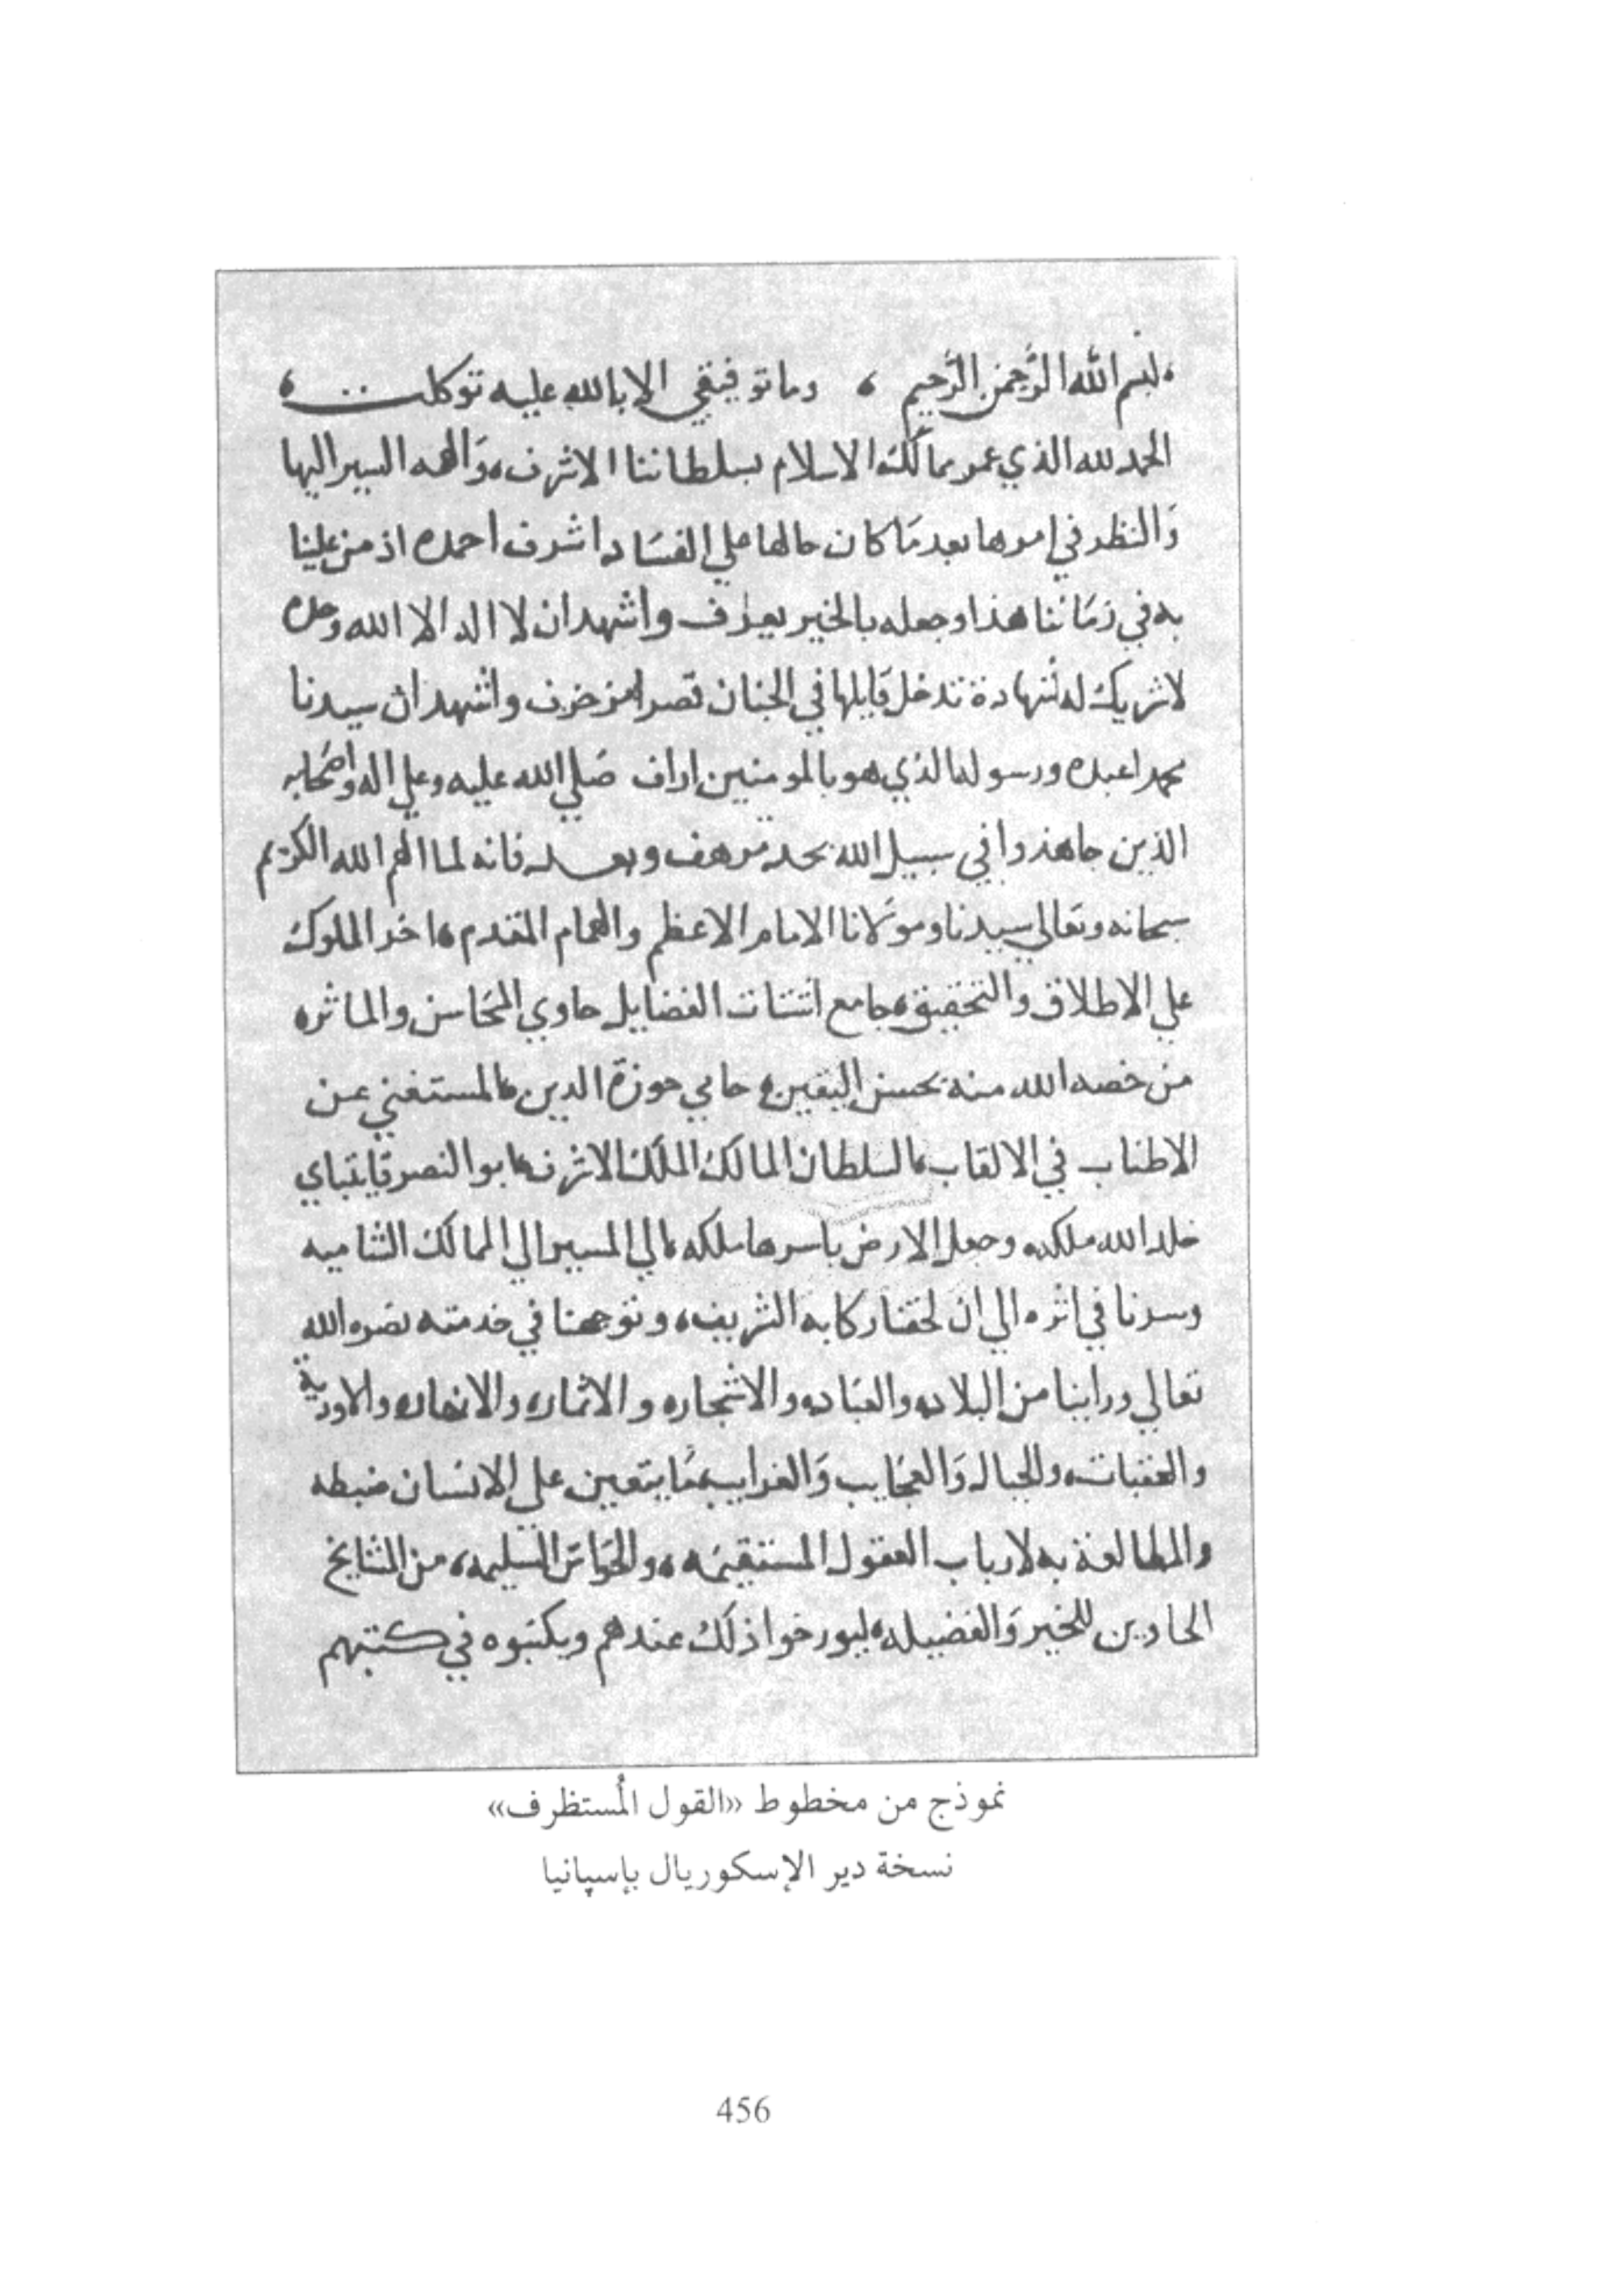 بسم الله الرَّحمن الرَّحيم ، وما توفيقي الا بالله عليه توكلت ،
الحمد لله الذي عمر ممالك الاسلام بسلطاننا الاشرف، وَالهمه السير اليها
وَالنظر في امورها بعد مَا كان حالها على الفسَاد اشرف احمده اذ من علينا
به في زمَاننا هذا وجعله بالخير يعرف واشهد ان لا اله الا الله وحده
لا شريك له شهادة تدخل قَايلها في الجنان قصرا مزخرف واشهد ان سيدنا
محمدا عبده ورسوله الذي هو بالمومنين اراف صَلي الله عليه وعلي اله واصحَابه
الذين جاهدوا في سبيل الله بحد مرهف وبعد فانه لما الهم الله الكريم
سبحانه وتعالي سيدنا ومولَانا الامام الاعظم والهمام المقدم، اخر الملوك
علي الاطلاق والتحقيق، جامع اشتات الفضايل حاوي المحَاسن والماثر،
من خصه الله منه بحسن اليقين، حامي حوزة الدين، المستغني عن
الاطناب في الالقاب، السلطان المالك الملك الاشرف، ابو النصر قايتباي
خلد الله ملكه، وجعل الارض باسرها ملكه، الي المسير الي الممالك الشاميه
وسرنا في اثره الي ان لحقنا ركابه الشريف، وتوجهنا في خدمته نصره الله
تعالي وراينا من البلاد، والعبَاد، والاشجار، والاثمار، والانهار، والاودية
والعقبات، والجبال وَالعجَايب وَالغرايب، مَا يتعين على الانسَان ضبطه
والمطالعة به لارباب العقول المستقيمَه، والحوَاس السليمه، من المشايخ
الحاوين للخير وَالفضيله، ليورخوا ذلك عندهم ويكتبوه في كتبهم
نموذج من مخطوط «القول المُستظرف»
نسخة دير الإسكوريال بإسپانيا
456